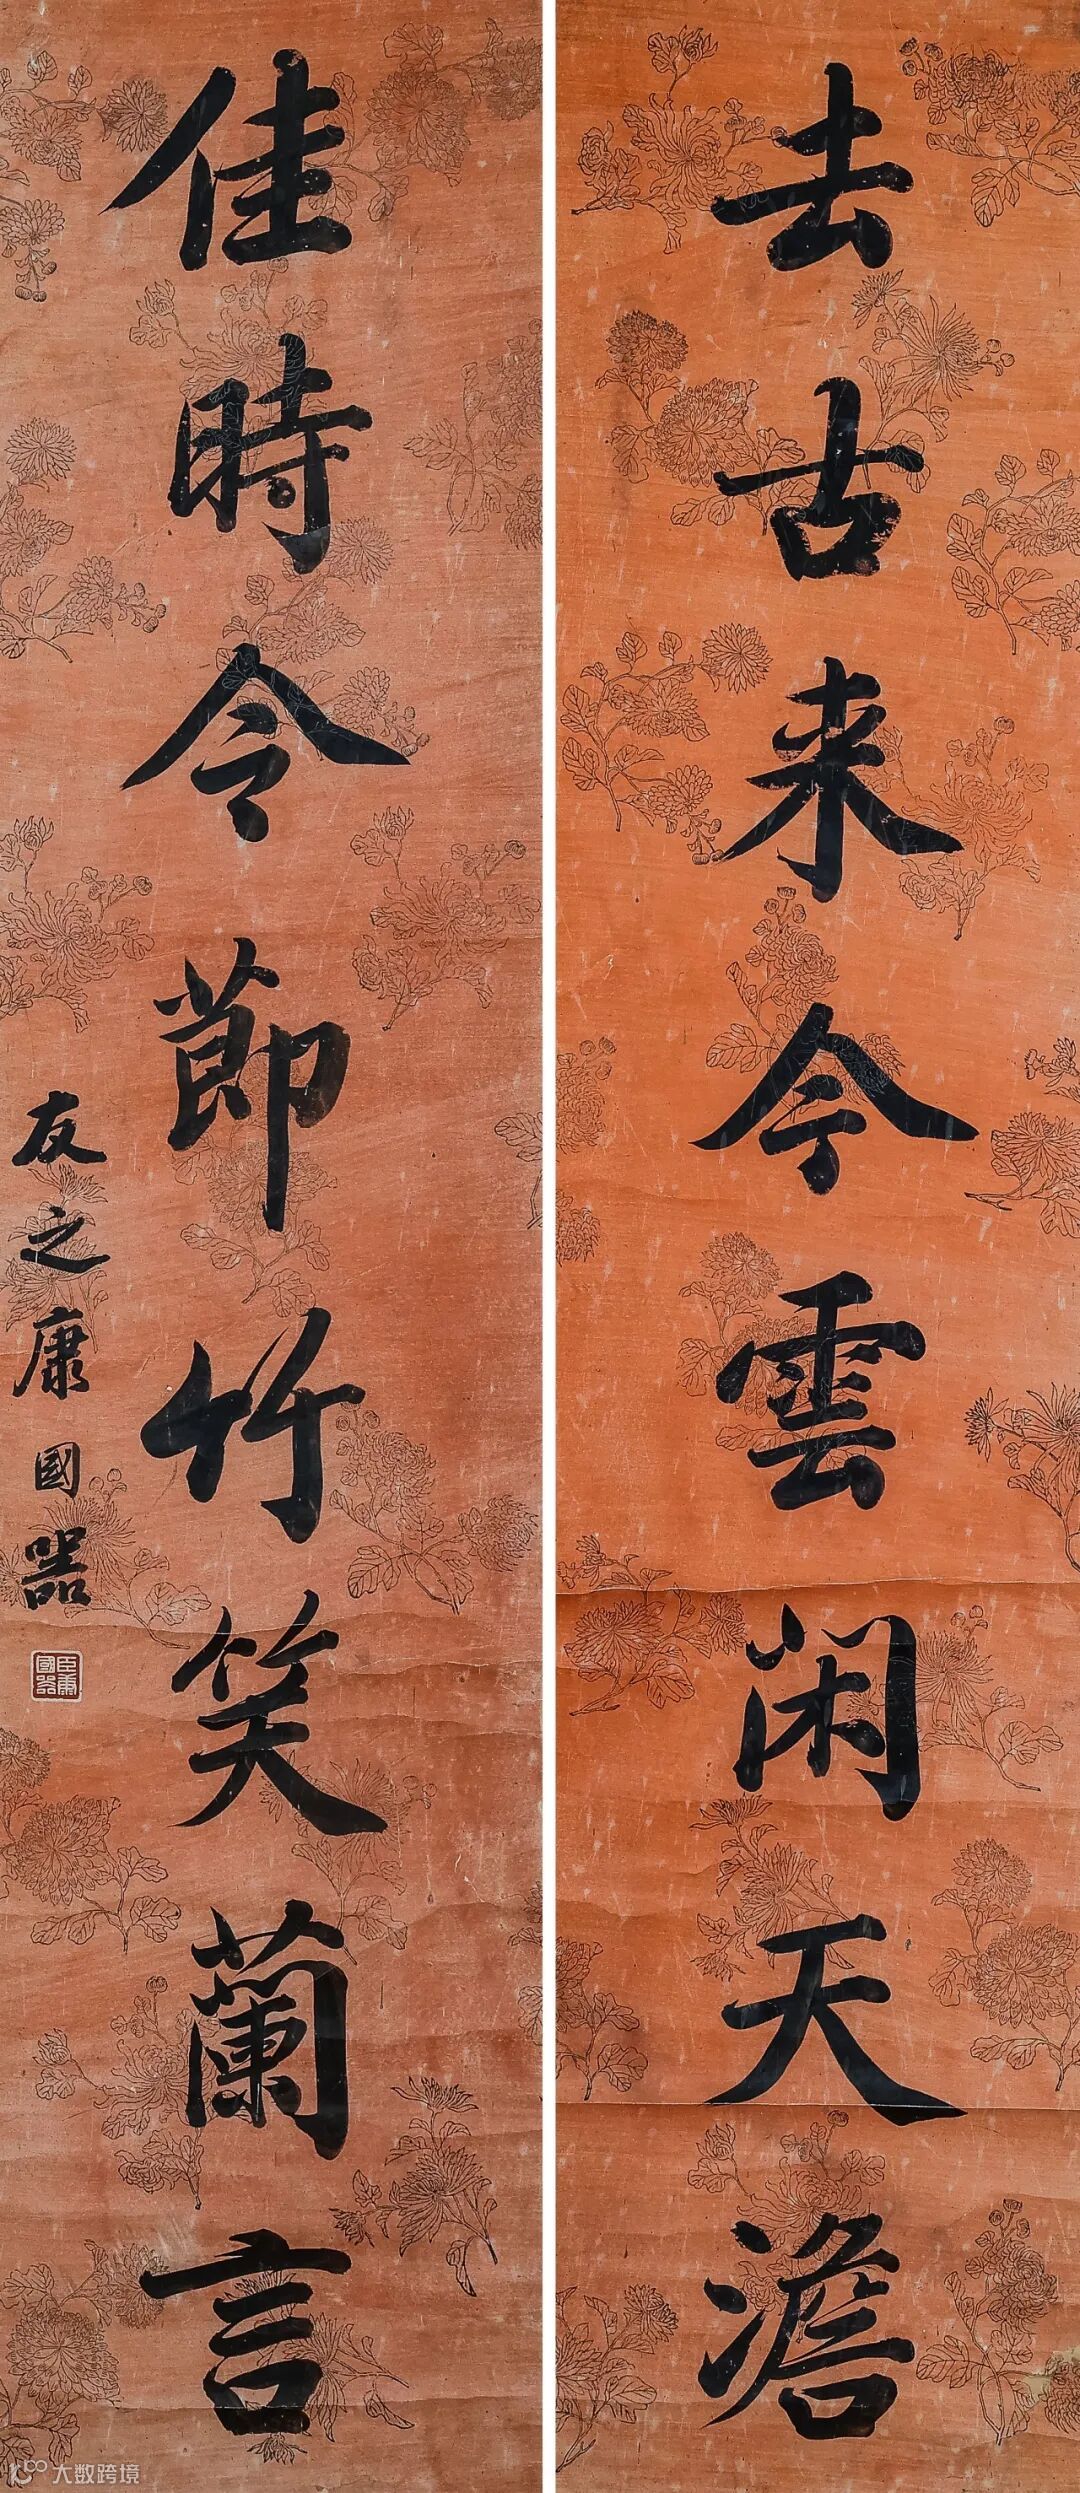 去古来今雲闲天澹
佳時令節竹笑蘭言
友之康國器
臣康國器
大数跨境